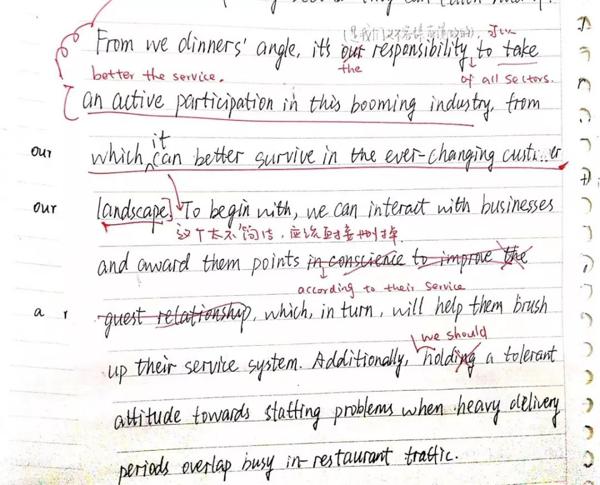 From we dinners' angle, it's our responsibility to take
the
better the service.
of all sectors.
an active participation in this booming industry, from
our
it
which can better survive in the ever-changing
our
landscape. To begin with, we can interact with businesses
这个太不简洁，应该直接删掉
and award them points in conscience to improve the
according to their service
a r
guest relationship, which, in turn, will help them brush
we should
up their service system. Additionally, holding a tolerant
attitude towards staffing problems when heavy delivery
periods overlap busy in-restaurant traffic.